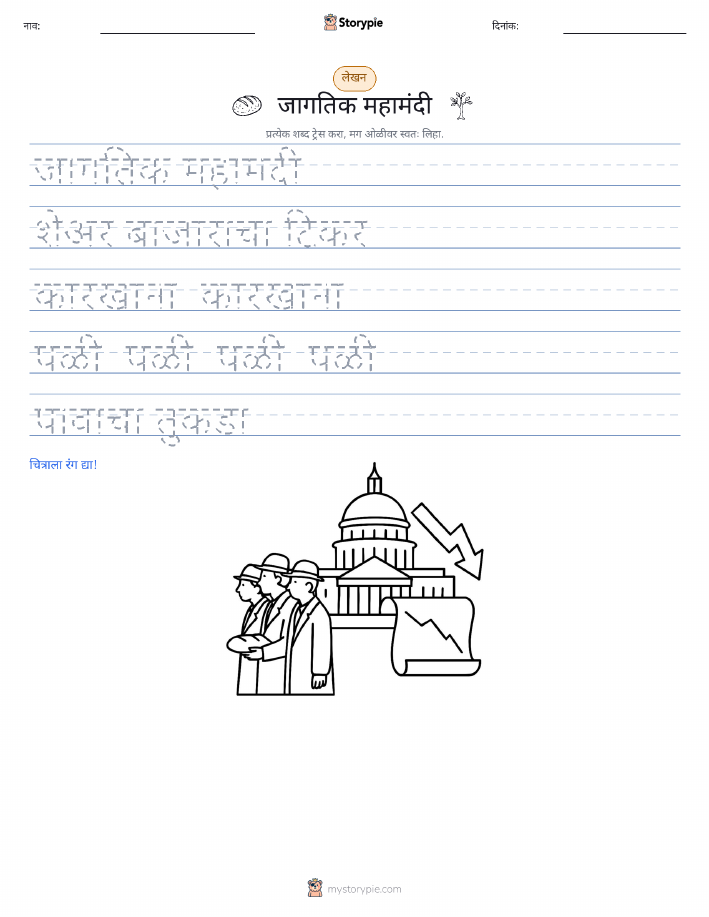 नाव:
Storypie
दिनांक:
लेखन
जागतिक महामंदी
प्रत्येक शब्द ट्रेस करा, मग ओळीवर स्वतः लिहा.
जागतिक महामंदी
शेअर बाजाराचा टिकर
कारखाना कारखाना
पळी पळी पळी पळी
पावाचा तुकडा
चित्राला रंग द्या!
mystorypie.com